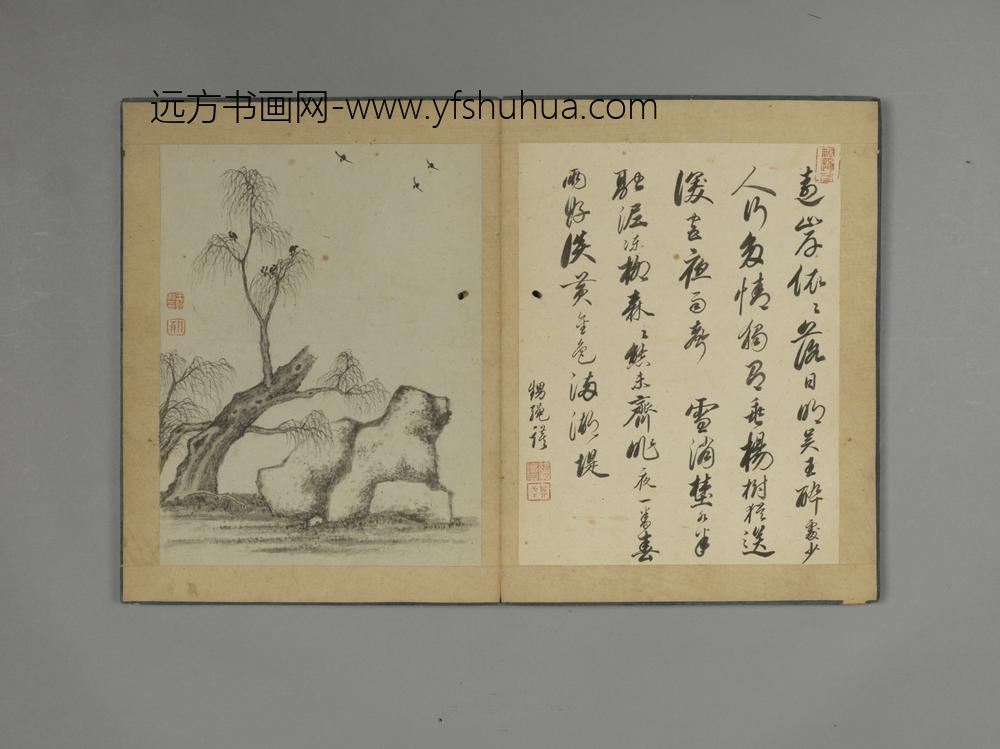 远方书画网-www.yfshuhua.com
遠岸依〻落日明吴王醉處少
人行多情獨有垂楊樹猶送
夜雨聲 雪消水半
融泥凍柳森〻態未齊昨夜一番春
雨好淡黄金色滿湖堤